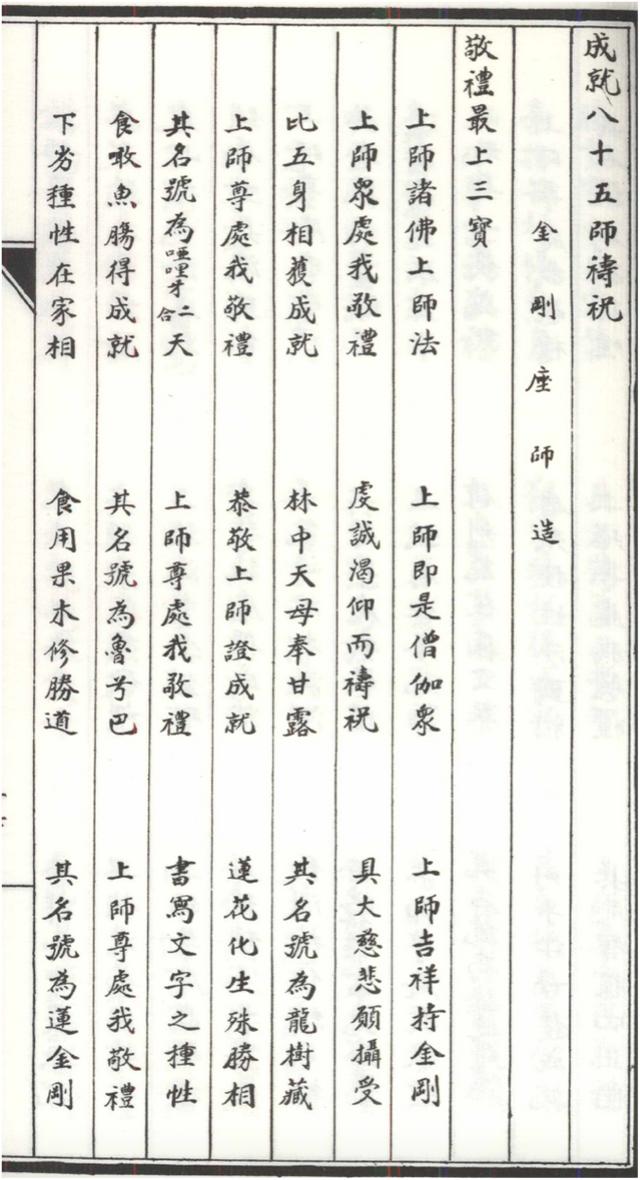 成就八十五師禱祝
金剛座師造
敬禮最上三寶
上師諸佛上師法 上師即是僧伽衆 上師吉祥持金剛
上師衆處我敬禮 虔誠渴仰而禱祝 具大慈悲願攝受
比五身相獲成就 林中天母奉甘露 其名號為龍樹藏
上師尊處我敬禮 恭敬上師證成就 蓮花化生殊勝相
其名號為哑哩牙二合天 上師尊處我敬禮 書寫文字之種性
食噉魚腸得成就 其名號為魯兮巴 上師尊處我敬禮
下劣種性在家相 食用果木修勝道 其名號為蓮金剛